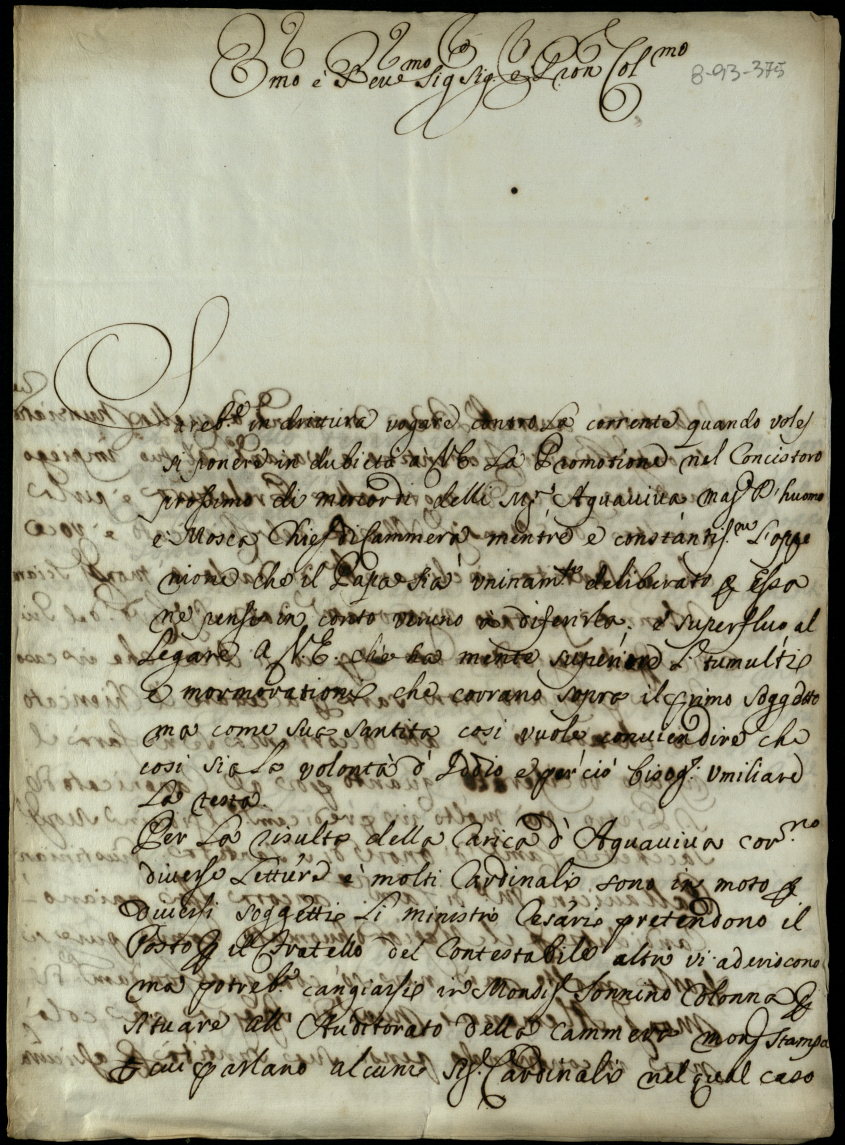 Emo e Reve^mo Sig Sig e Pron Col^mo
8-93-375
Sareb.e in drittura vogare contro La corrente quando voles
si ponere in dubieta a VE La Promotione nel Concistoro
prossimo di mercordi delli Mg.ri Aquaviva mag.r d'huomo
e Mosca Chier di cammera mentre e constantis.ma L'oppe
nione che il Papa sia deliberato p Essa
ne pensi in conto veruno a diferirla. e superfluo al
Legare A VE. che ha mente superiore L tumulti
e mormorationi che corrano sopra il primo soggetto
ma come sua santita cosi vuole conviendire che
cosi sia La volontà d'Iddio e perció bisog.a Vmiliare
La testa.
Per La risulta della Carica d'Aquaviva cor.no
diverse Letture e molti Cardinali sono in moto p
diversi soggetti Li ministri Cesarei pretendono il
Posto p il Fratello del Contestabile altri vi aderiscono
ma potreb.e cangiarsi in Mondis. Sonnino Colonna p
situare all'Auditorato della cammera mong Stampa
p cui parlano alcuni Sig.i Cardinali nel qual caso